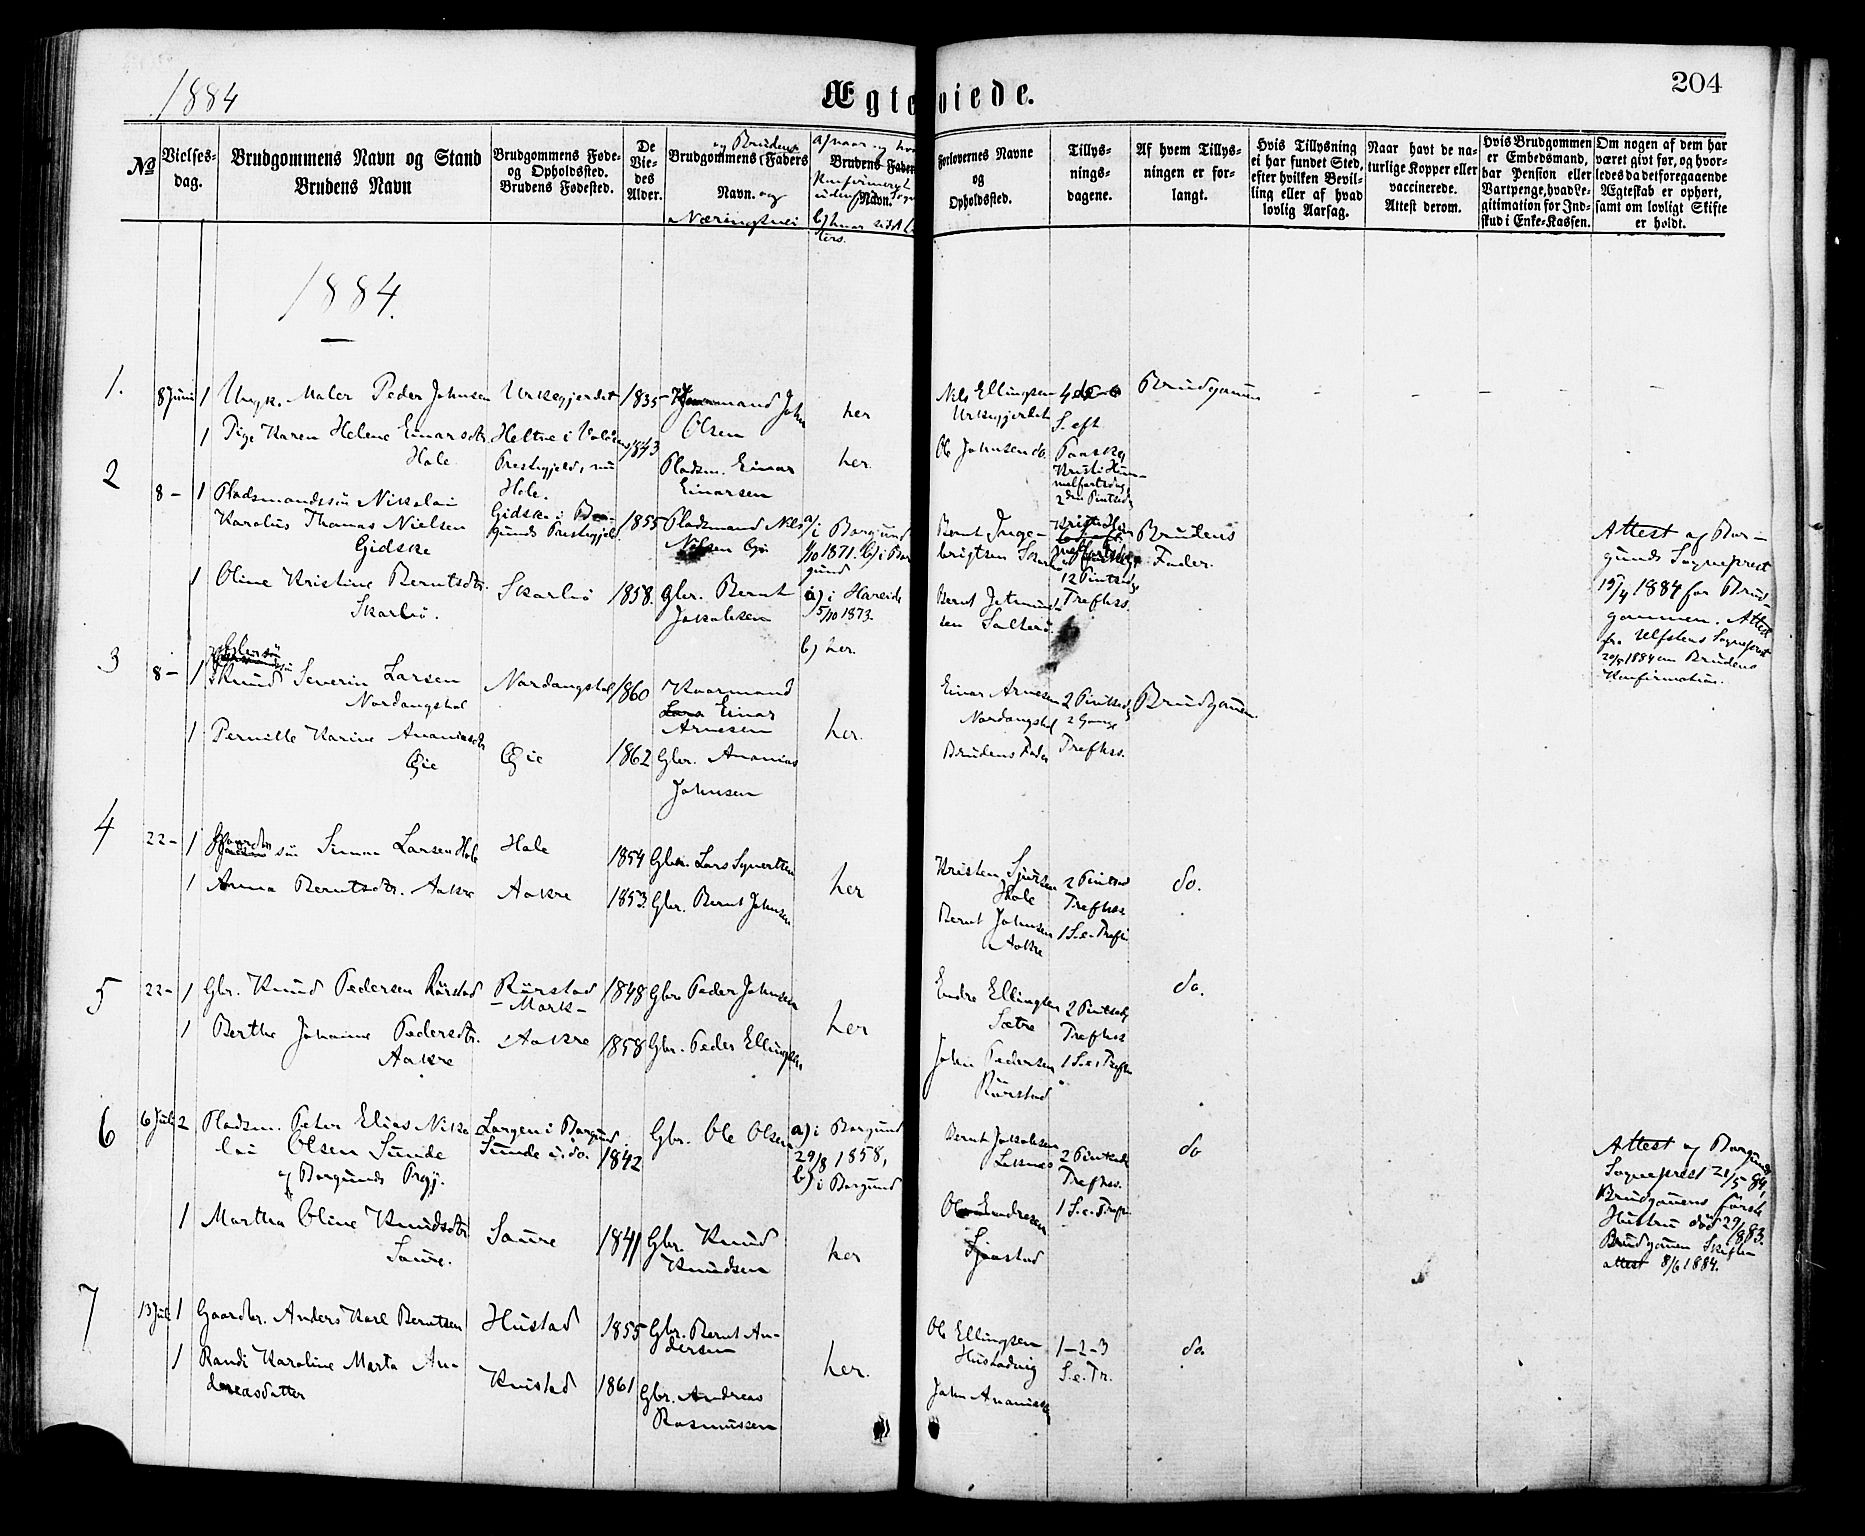 1884
Ægteviede.
204
No
Vielses-
dag.
Brudgommens Navn og Stand
Brudens Navn
Brudgommens Føde-
og Opholdssted.
Brudens Fødested.
De
Vie-
des
Alder.
og Brudens
Brudgommens Faders
Navn. og
Næringsvei
a) naar og
Brudens Faders
Konfirmeret
Navn.
b) hvor sidst
ters.
Forlovernes Navne
og
Opholdssted.
Tillys-
nings-
dagene.
Af hvem Tillys-
ningen er for-
langt.
Hvis Tillysning
ei har fundet Sted,
efter hvilken Bevil-
ling eller af hvad
lovlig Aarsag.
Naar havt de na-
turlige Kopper eller
vaccinerede.
Attest derom.
Hvis Brudgommen
er Embedsmand,
har Pension eller
Vartpenge, hvad Le-
gitimation for Ind-
skud i Enke-Kassen.
Om nogen af dem har
været givt før, og hvor-
ledes da det foregaaende
Ægteskab er ophørt,
samt om lovligt Skifte
er holdt.
1884.
1.
8 Juni 1 Ungk. Maler Peder Johnsen Urkegjerdet 1835 mand John
Olsen
her
Nils Ellingsen
Urkegjerdet
S. eft
Brudgommen
1 Pige Karen Helene Einarsdtr. Heltne i Volden 1843
Hole Prestegjeld, nu
Hole.
Pladsm. Einar
Einarsen
her.
Ole Johnsen do.
Paaske
Kristi Him-
melfartsdag
2den Pintsedag
2
8 – 1 Pladsmandssøn Nikolai
Karolus Thomas Nielsen
Gidske
Gidske i Bor-
gunds Prestegjeld
1855 Pladsmand Nils
Nilsen Gjø
a) i Borgund
1/10 1871. b) i Bor
gund
Bernt Inge-
brigtsen Skarbø
12 Pintsedg
Brudens
Fader.
Attest og Bor-
gunds Sogneprest
15/4 1884 for Brud-
gommen. Attest
fr. Ulfstens Sogneprest
20/5 1884 om Brudens
Konfirmation.
1 Oline Kristine Berntsdtr.
Skarbø.
Skarbø 1858. Gbr. Bernt
Jakobsen
a) i Hareide
5/10 1873.
b) her.
Bernt Jetmund-
sen Sæterø
Trefhss.
3
8 – 1 Knud Severin Larsen
Nordangshol
Nordangshol 1860 Kaarmand
Einar
Arnesen
her.
Einar Arnesen
Nordangshol
2 Pintsedg
2 Gange
Brudgommen
1 Pernille Karine Ananiasdtr.
Øie
Øie 1862 Gbr. Ananias
Johnsen
Brudens Fader
Trefhss.
4
22 – 1 søn Simon Larsen Hole Hole 1854 Gbr. Lars Syvertsen
her
Kristen Sjursen
Hole
2 Pintsed
Trefhss
do.
1 Anna Berntsdtr. Aakre Aakre 1853. Gbr. Bernt Johnsen
Bernt Johnsen
Aakre
1 S. e. Trefh
5
22 – 1 Gbr. Knud Pedersen Rörstad Rörstad
– Mork –
1848 Gbr Peder Johnsen
her
Endre Ellingsen
Sætre
2 Pintsedg
Trefhss
do.
1 Berthe Johanne Pedersdtr.
Aakre
Aakre 1858 Gbr. Peder Ellingsen
John Pedersen
Rörstad
1 S. e. Trefh
6
6 Juli 2 Pladsm. Peter Elias Niko
lai Olsen Sunde
af Borgunds Prgj.
Langen i Borgund
Sunde i do. 1842
Gbr. Ole Olsen
a) i Borgund
29/8 1858,
b) i Borgund
Bernt Jakobsen
Leknes
2 Pintsedg
Trefhss.
do
Attest og Borgunds
Sogneprest 21/5 84,
Brudgommens første
Hustru død 29/ 83.
Brudgommen Skifte
attest 8/6 1884.
1 Martha Oline Knudsdtr
Saure.
Saure 1841 Gbr. Knud
Knudsen
her
Ole Endresen
Sjaastad
1 S. e. Trefh
7
13 Juli 1 Gaardbr. Anders Karl Berntsen Hustad 1855 Gbr. Bernt An-
dersen
her.
Ole Ellingsen
Hustadvig
1–2–3
S. e. Tr.
do.
1 Randi Karoline Marta An-
dreasdatter
Knistad 1861 Gbr. Andreas
Rasmussen
John Ananiassen